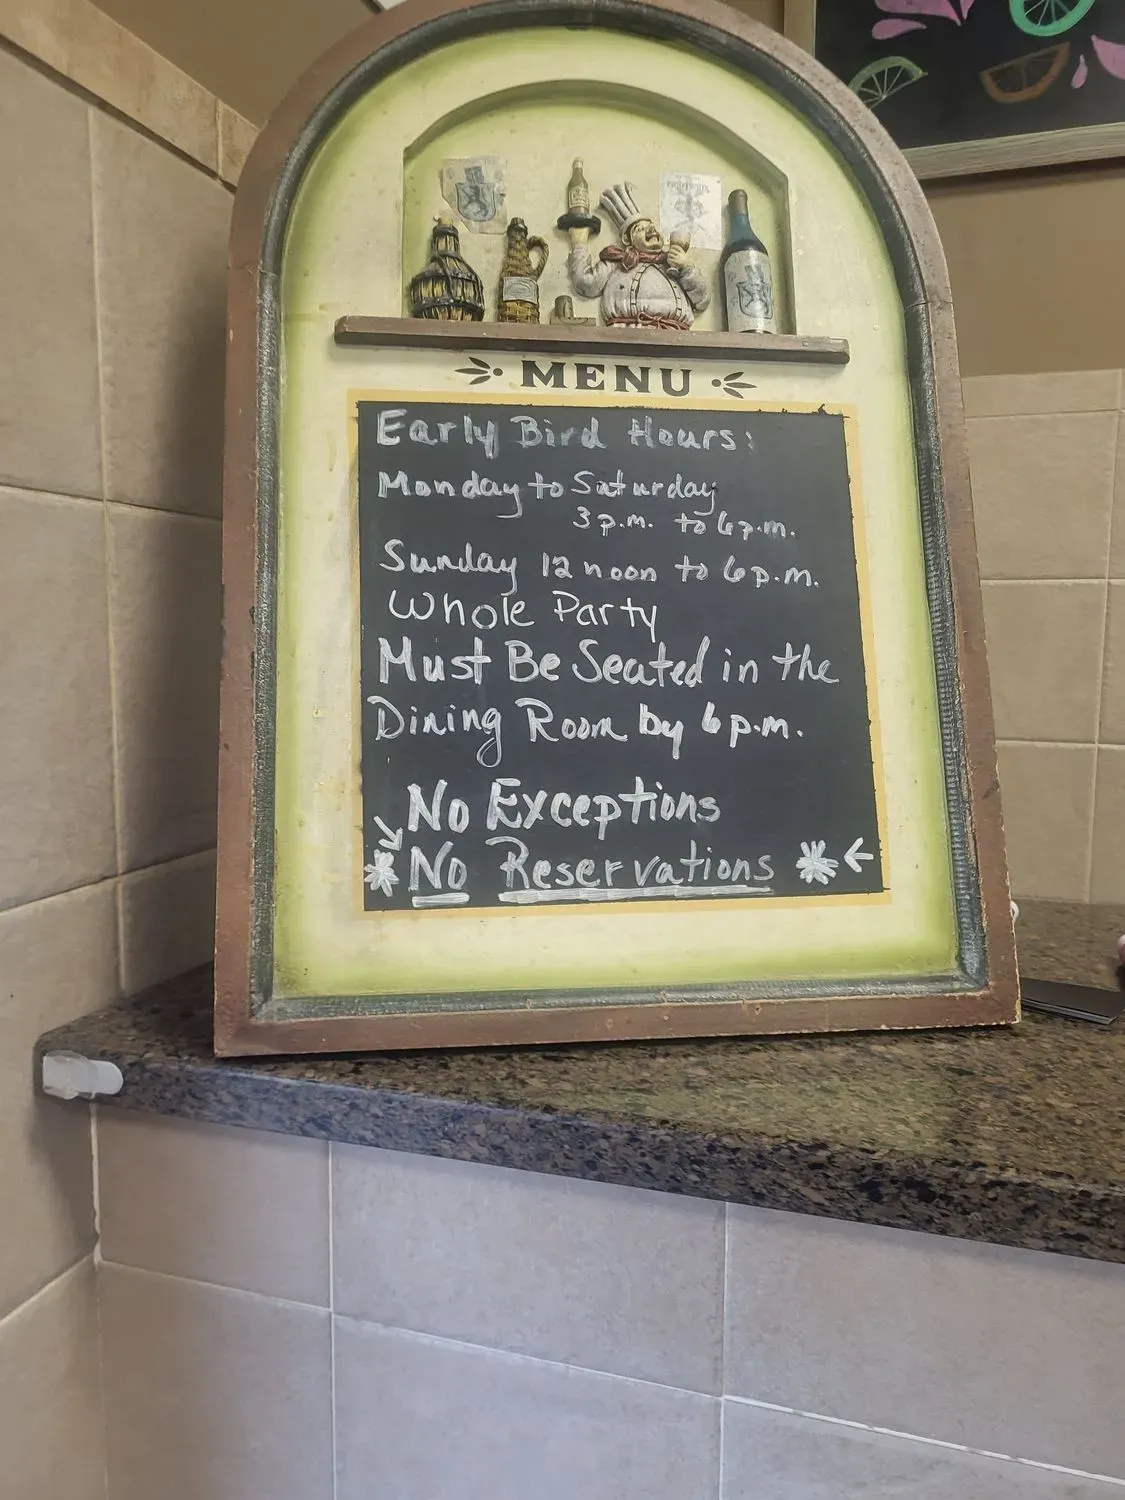 MENU
Early Bird Hours:
Monday to Saturday
3 p.m. to 6 p.m.
Sunday 12 noon to 6 p.m.
Whole Party
Must Be Seated in the
Dining Room by 6 p.m.
No Exceptions
No Reservations